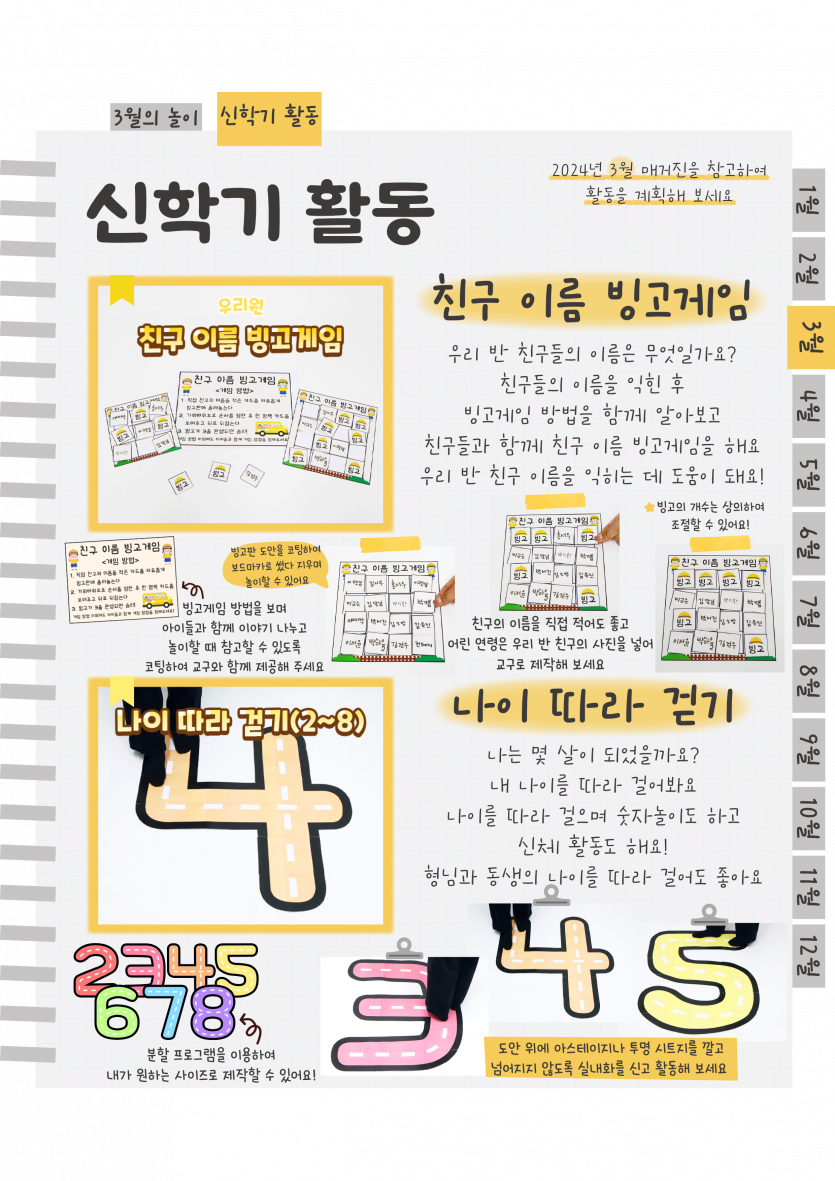 3월의 놀이
신학기 활동
신학기 활동
2024년 3월 매거진을 참고하여
활동을 계획해 보세요
1월
2월
3월
4월
5월
6월
7월
8월
9월
10월
11월
12월
우리원
친구 이름 빙고게임
친구 이름 빙고게임
<게임 방법>
친구 이름 빙고게임
우리 반 친구들의 이름은 무엇일가요?
친구들의 이름을 익힌 후
빙고게임 방법을 함께 알아보고
친구들과 함께 친구 이름 빙고게임을 해요
우리 반 친구 이름을 익히는 데 도움이 돼요!
빙고의 개수는 상의하여
조절할 수 있어요!
친구 이름 빙고게임
<게임 방법>
빙고판 도안을 코팅하여
보드마카로 썼다 지우며
놀이할 수 있어요
빙고게임 방법을 보며
아이들과 함께 이야기 나누고
놀이할 때 참고할 수 있도록
코팅하여 교구와 함께 제공해 주세요
친구 이름 빙고게임
친구 이름 빙고게임
친구 이름 빙고게임
친구의 이름을 직접 적어도 좋고
어린 연령은 우리 반 친구의 사진을 넣어
교구로 제작해 보세요
나이 따라 걷기(2~8)
4
나이 따라 걷기
나는 몇 살이 되었을까요?
내 나이를 따라 걸어봐요
나이를 따라 걸으며 숫자놀이도 하고
신체 활동도 해요!
형님과 동생의 나이를 따라 걸어도 좋아요
2345
678
분할 프로그램을 이용하여
내가 원하는 사이즈로 제작할 수 있어요!
3
4
5
도안 위에 아스테이지나 투명 시트지를 깔고
넘어지지 않도록 실내화를 신고 활동해 보세요